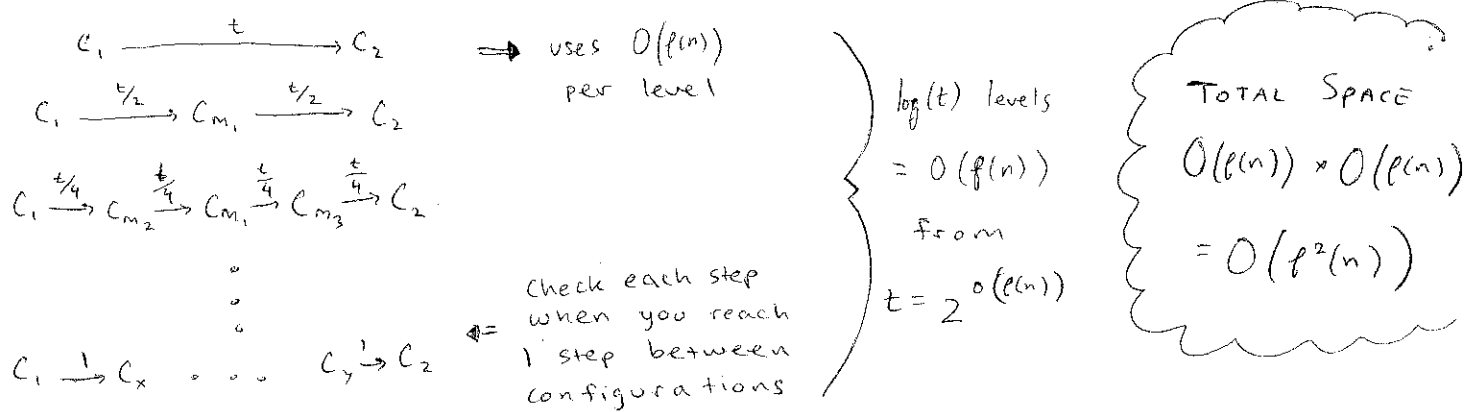 C₁ —t→ C₂ ⇒ uses O(f(n))
per level
C₁ —t/2→ Cₘ₁ —t/2→ C₂
C₁ —t/4→ Cₘ₂ —t/4→ Cₘ₁ —t/4→ Cₘ₃ —t/4→ C₂
C₁ —1→ Cₓ . . . Cᵧ —1→ C₂
⇐ Check each step
when you reach
1 step between
configurations
log(t) levels
= O(f(n))
from
t = 2^O(f(n))
TOTAL SPACE
O(f(n)) * O(f(n))
= O(f²(n))